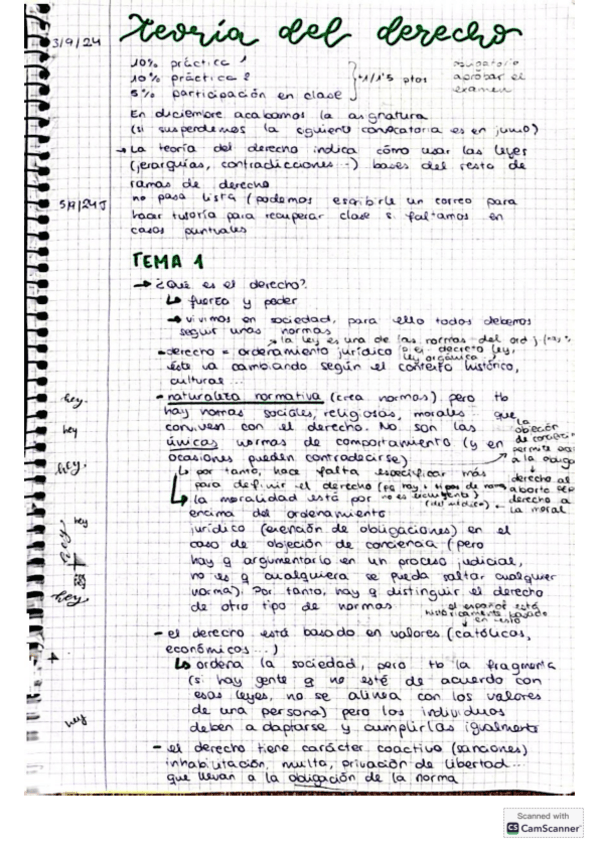 3/9/24 Teoría del derecho
10% práctica 1
10% práctica 2
5% participación en clase
+1/1'5 ptos
obligatorio
aprobar el
examen
En diciembre acabamos la asignatura
(si suspendemos la siguiente convocatoria es en junio)
→ La teoría del derecho indica cómo usar las leyes
(jerarquías, contradicciones...) bases del resto de
ramas de derecho
5/9/24 J
no pasa lista (podemos escribirle un correo para
hacer tutoría para recuperar clase si faltamos en
casos puntuales
TEMA 1
→ ¿Qué es el derecho?
↳ fuerza y poder
→ vivimos en sociedad, para ello todos debemos
seguir unas normas
→ la ley es una de las normas del ord j
- derecho = ordenamiento jurídico
decreto ley,
ley orgánica
éste va cambiando según el contexto histórico,
cultural...
- naturaleza normativa (crea normas) pero tb
hay normas sociales, religiosas, morales... que
conviven con el derecho. No son las
únicas normas de comportamiento (y en
ocasiones pueden contradecirse)
La
objeción
de
permite
a la
derecho al
aborto
derecho a
la moral
↳ por tanto, hace falta especificar más
para definir el derecho (pq hay + tipos de normas)
↳ la moralidad está por
encima del ordenamiento
(del médico)
jurídico (exención de obligaciones) en el
caso de objeción de conciencia (pero
hay q argumentarlo en un proceso judicial,
no es q cualquiera se pueda saltar cualquier
norma). Por tanto, hay q distinguir el derecho
de otro tipo de normas
el español está
históricamente basado
en esto
- el derecho está basado en valores (católicos,
económicos...)
↳ ordena la sociedad, pero tb la fragmenta
(si hay gente q no esté de acuerdo con
esas leyes, no se alinea con los valores
de una persona) pero los individuos
deben adaptarse y cumplirlas igualmente
- el derecho tiene carácter coactivo (sanciones)
inhabilitación, multa, privación de libertad...
que llevan a la obligación de la norma
hey.
hey
hey.
hey
hey
hey
hey
Scanned with
CS CamScanner